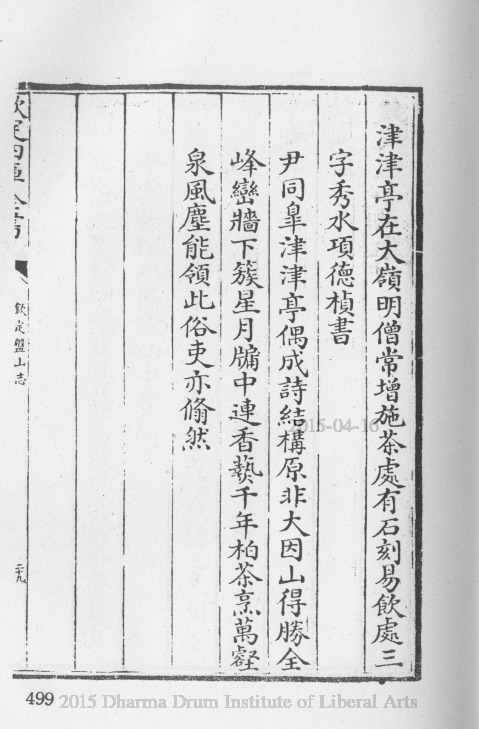 津津亭在大嶺明僧常增施茶處有石刻易飲處三
字秀水項德楨書
尹同臯津津亭偶成詩結構原非大因山得勝全
峰巒牆下簇星月牗中連香爇千年柏茶烹萬壑
泉風塵能領此俗吏亦翛然
欽定四庫全書
欽定盤山志
二十九
2015-04-16
499 2015 Dharma Drum Institute of Liberal Arts